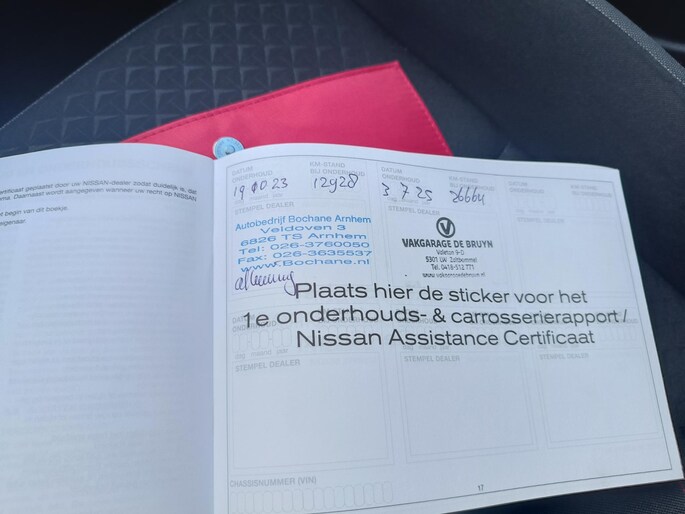 ertificaat geplaatst door uw NISSAN-dealer zodat duidelijk is, dat
ma. Daarnaast wordt aangegeven wanneer uw recht op NISSAN
t begin van dit boekje.
eigenaar.
DATUM ONDERHOUD
KM-STAND BIJ ONDERHOUD
DATUM ONDERHOUD
KM-STAND BIJ ONDERHOUD
12928
3 7 25
36664
STEMPEL DEALER
STEMPEL DEALER
Autobedrijf Bochane Arnhem
Veldoven 3
6826 TS Arnhem
Tel: 026-3760050
Fax: 026-3635537
www.Bochane.nl
VAKGARAGE DE BRUYN
Valeton 9-D
5301 LW Zaltbommel
Tel. 0418-512 771
www.vakgaragedebruyn.nl
aflevering
Plaats hier de sticker voor het
1e onderhouds- & carrosserierapport /
Nissan Assistance Certificaat
STEMPEL DEALER
STEMPEL DEALER
STEMPEL DEALER
CHASSISNUMMER (VIN)
17